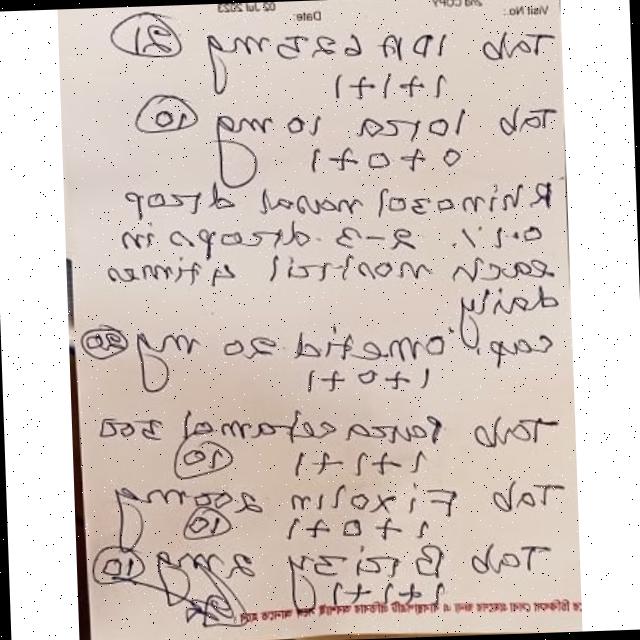 Visit No.: 2nd COPY Date: 02 Jul 2023
Tab mg 21
1+1+1
Tab 10 mg 10
0+0+1
Rhinozol nasal drop
0.1%. 2-3 drops in
each nostril 4 times
daily
cap. Ometid 20 mg 20
1+0+1
Tab Paracetamol 500
1+1+1 10
Tab Fixolin 200mg
1+0+1 10
Tab 2mg 10
1+1+1